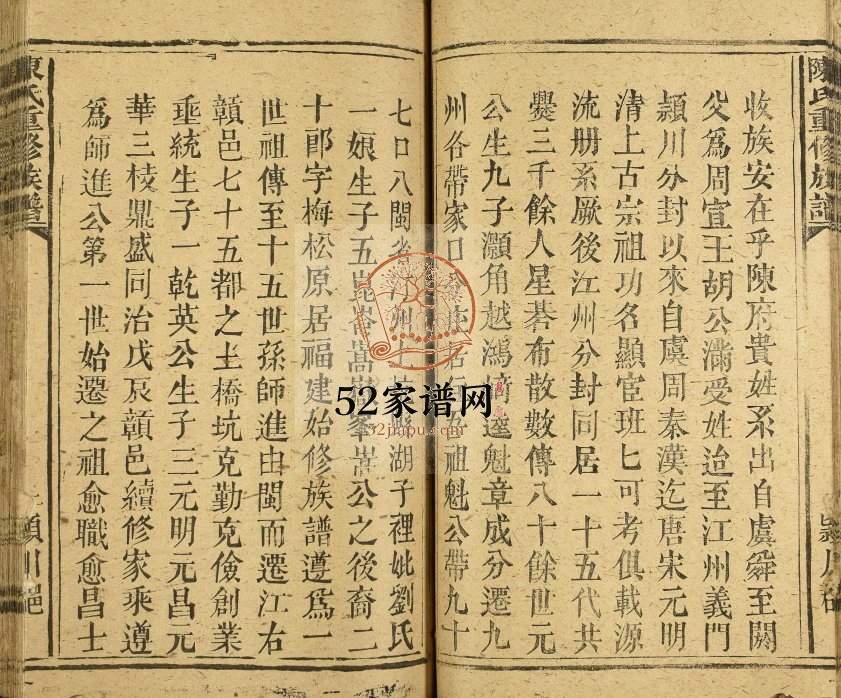 陳氏重修族譜
收族安在乎陳府貴姓系出自虞舜至閼
父爲周宣王胡公滿受姓迨至江州義門
潁川分封以來自虞周秦漢迄唐宋元明
清上古宗祖功名顯宦班匕可考俱載源
流册系厥後江州分封同居一十五代共
爨三千餘人星碁布散數傳八十餘世元
公生九子灝角越鴻 達魁章成分遷九
州各帶家口 祖魁公帶九十
潁川
七口八閩 州 湖子裡妣劉氏
一娘生子五崑崙嵩 峯嵩公之後裔二
十郎字梅松原居福建始修族譜遵爲一
世祖傳至十五世孫師進由閩而遷江右
贛邑七十五都之土橋坑克勤克儉創業
垂統生子一乾英公生子三元明元昌元
華三枝鼎盛同治戊辰贛邑續修家乘遵
爲師進公第一世始遷之祖愈職愈昌士
陳氏重修族譜
潁川
52家谱网
52jiapu.com